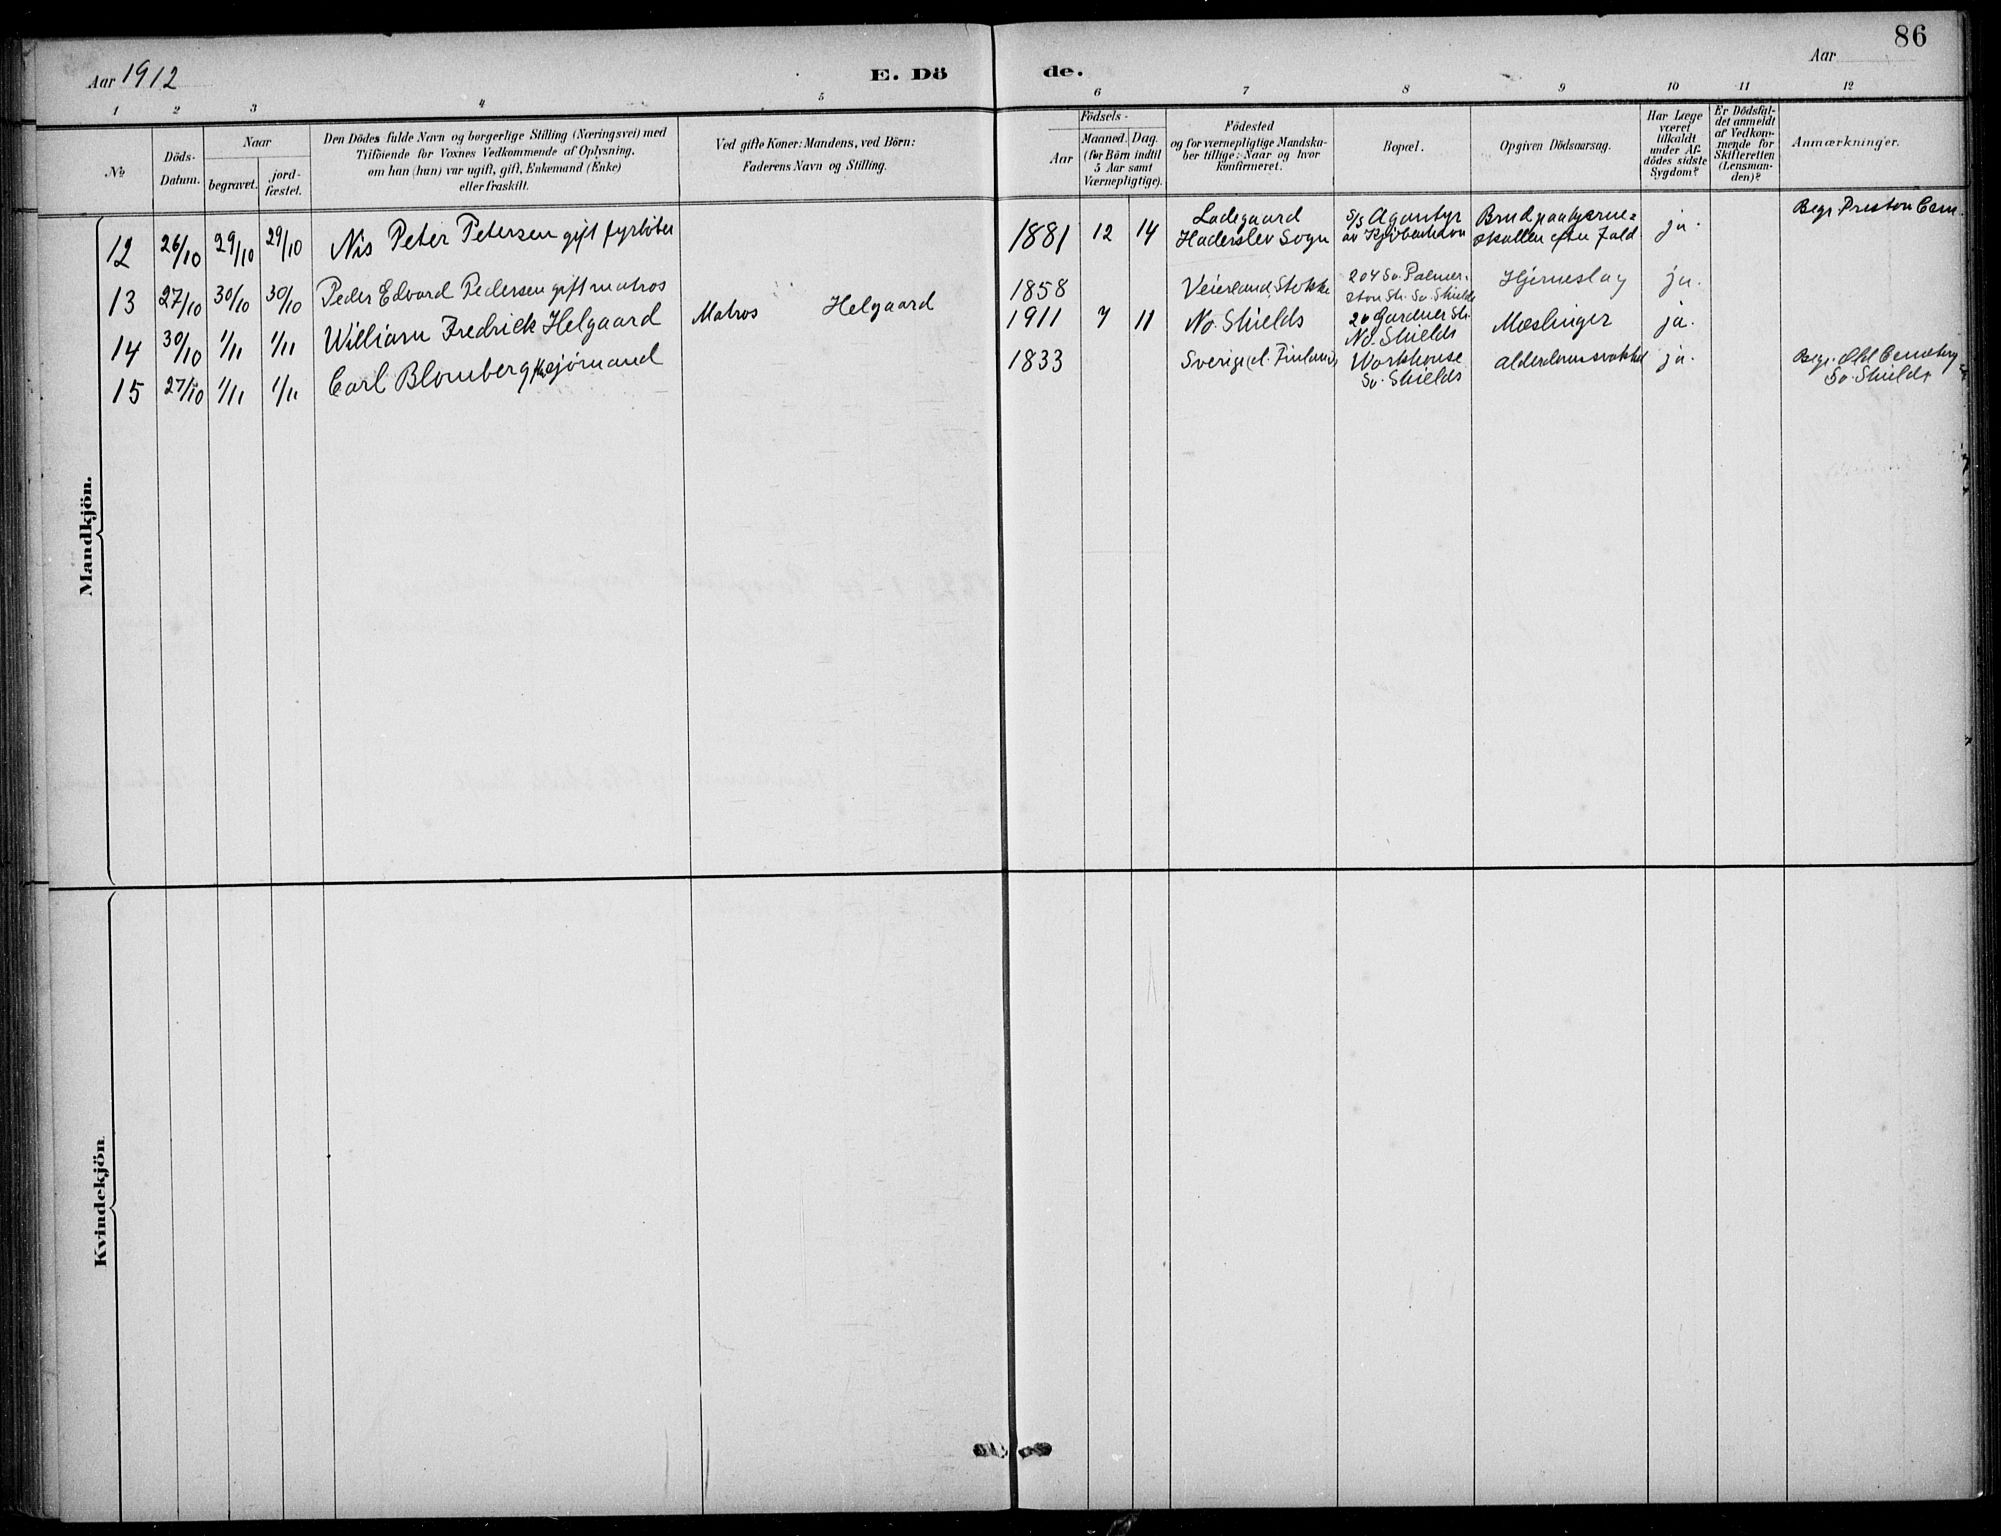 Aar 1912
E. Dö
de.
Aar
86
1 2 3 4 5 6 7 8 9 10 11 12
No
Döds-Datum.
Naar
begravet.
jord-fæstet.
Den Dödes fulde Navn og borgerlige Stilling (Næringsvei) med
Tilföiende for Voxnes Vedkommende af Oplysning,
om han (hun) var ugift, gift, Enkemand (Enke)
eller fraskilt.
Ved gifte Koner: Mandens, ved Börn:
Faderens Navn og Stilling.
Födsels-
Aar
Maaned. Dag.
(for Börn indtil
5 Aar samt
Værnepligtige).
Födested
og for værnepligtige Mandska-
ber tillige: Naar og hvor
konfirmeret.
Bopæl.
Opgiven Dödsaarsag.
Har Læge
været
tilkaldt
under Af-
dödes sidste
Sygdom?
Er Dödsfal-
det anmeldt
af Vedkom-
mende for
Skifteretten
(Lensman-
den)?
Anmærkninger.
Mandkjön.
12 26/10 29/10 29/10 Nis Peter Petersen gift fyrbøter 1881 12 14 Ladegaard Haderslev Sogn S/S Agantyr av Kjøbenhavn Brud paa hjerne= skallen efter Fald ja. Begr. Preston Cem.
13 27/10 30/10 30/10 Peder Edvard Pedersen gift matros 1858 Veierland, Stokke 204 So. Palmer-ston Str. So. Shields Hjerneslag ja.
14 30/10 1/11 1/11 William Fredrick Helgaard Matros Helgaard 1911 7 11 No. Shields 20 Gardner Str. No. Shields Mæslinger ja.
15 27/10 1/11 1/11 Carl Blomberg sjømand 1833 Sverige Finland Workhouse So. Shields alderdomssvakhet ja. Begr. Old Cemetery So. Shields
Kvindekjön